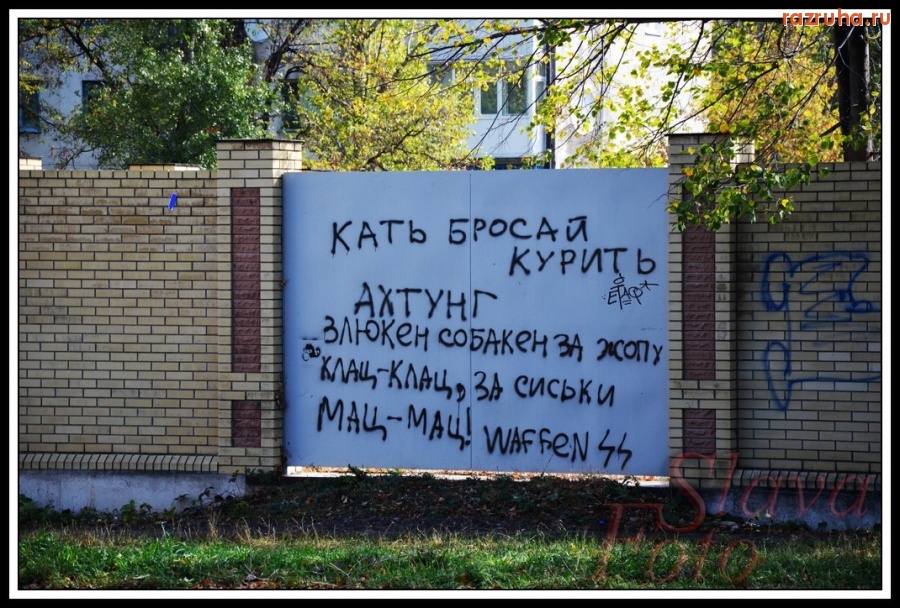 razruha.ru
КАТЬ БРОСАЙ
КУРИТЬ
ЕТАФ*
АХТУНГ
ЗЛЮКЕН СОБАКЕН ЗА ЖОПУ
КЛАЦ-КЛАЦ, ЗА СИСЬКИ
МАЦ-МАЦ! WAFFEN SS
Slava
Foto